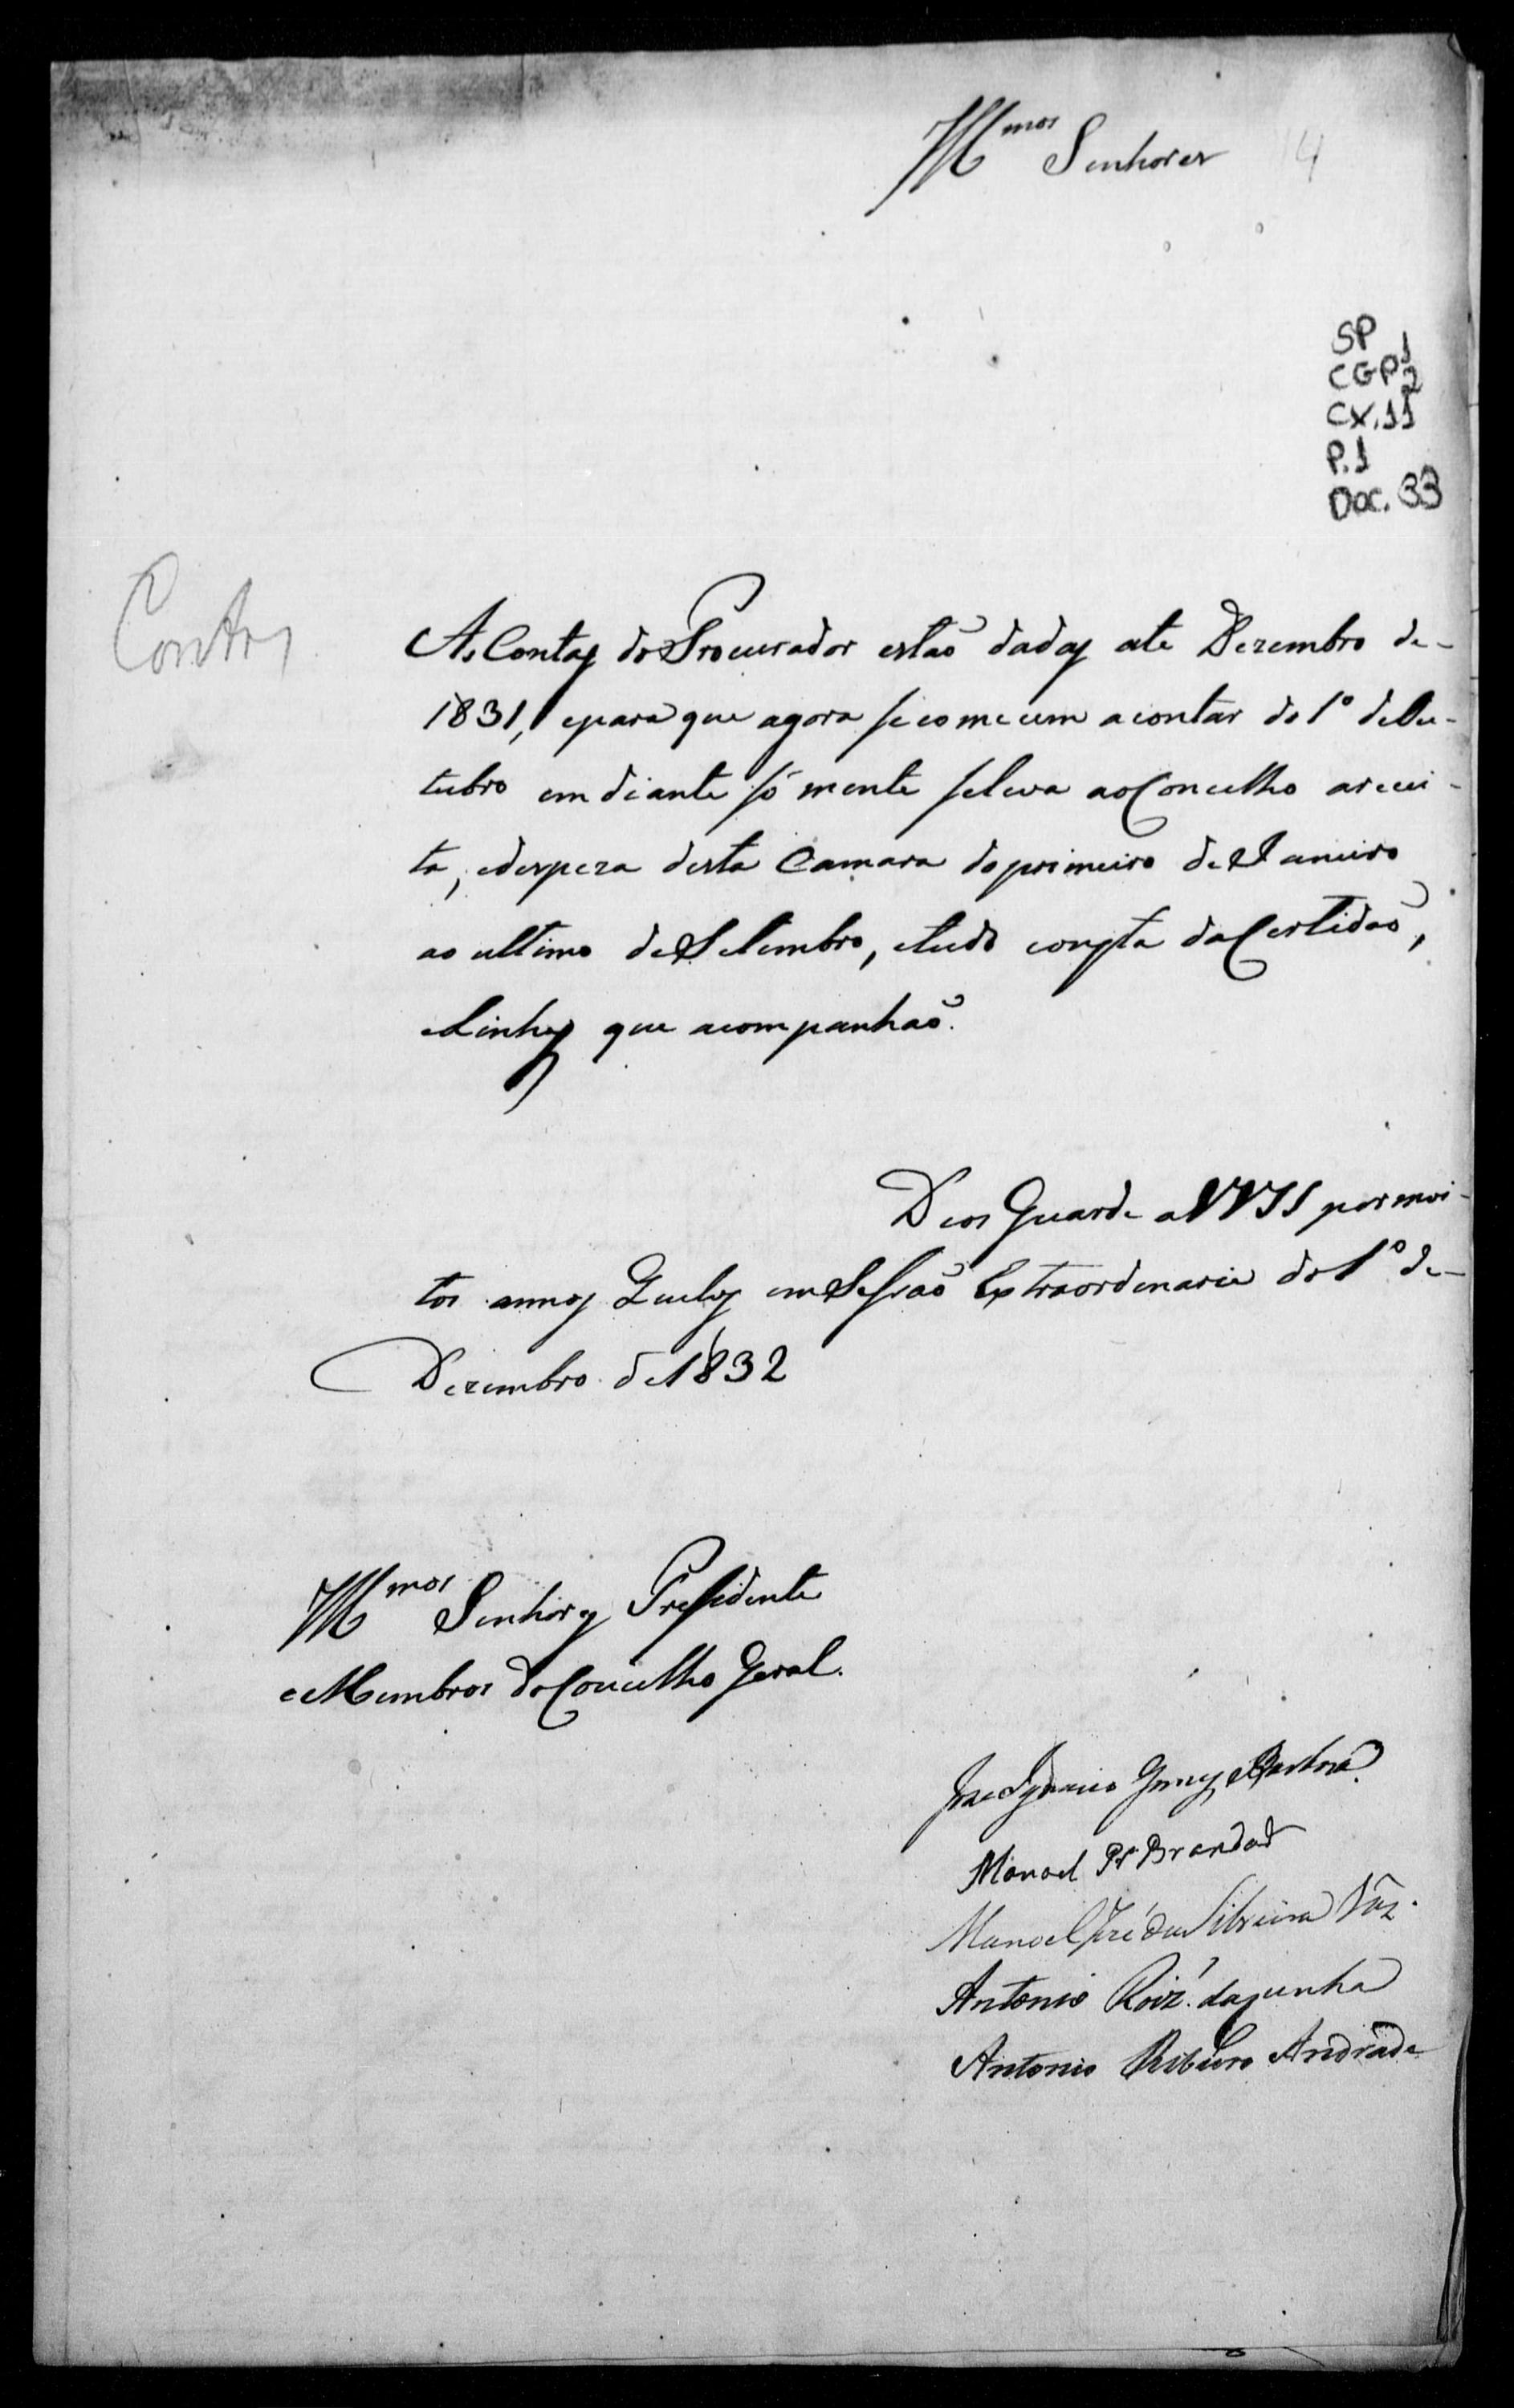 Illmos Senhores 14
SP 1
CGP 2
CX. 11
P. 1
Doc. 33
Contas
As Contas do Procurador estaõ dadas ate Dezembro de-
1831, epara que agora se comecem acontar do 1º de Ou-
tubro em diante só mente seleva ao Concelho arecei-
ta, edespeza desta Camara do primeiro de Janeiro
ao ultimo de Setembro, etudo consta da Certidaõ,
elinhas que acompanhaõ.
Deos Guarde a VVSS por moi-
tos annos Queluz em Sessaõ Extraordenaria do 1º de-
Dezembro de 1832
Illmos Senhores Presidente
e Membros do Concelho Geral.
Jose Ignacio Gomes Barboza
Manoel Pr Brandaõ
Manoel José da Silveira Váz.
Antonio Roiz. da Cunha
Antonio Ribeiro Andrade